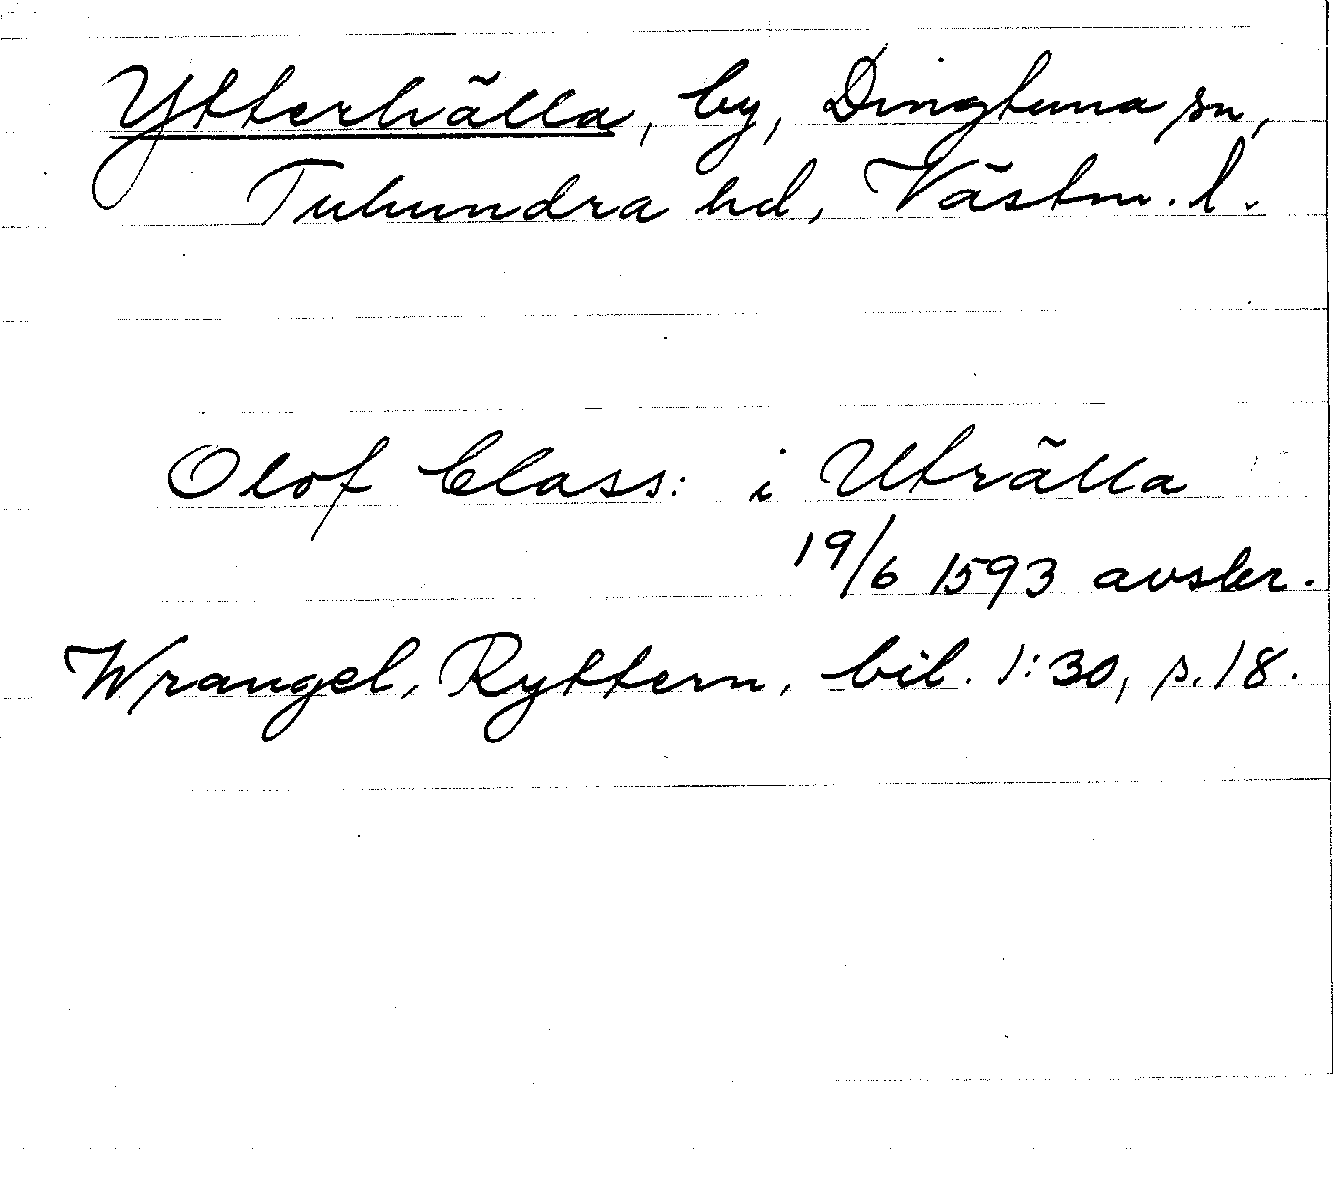 Ytterhälla, by, Dingtuna sn,
Tuhundra hd, Västm. l.
Olof Class: i Uträlla
19/6 1593 avskr.
Wrangel, Ryttern, bil. 1:30, s. 18.